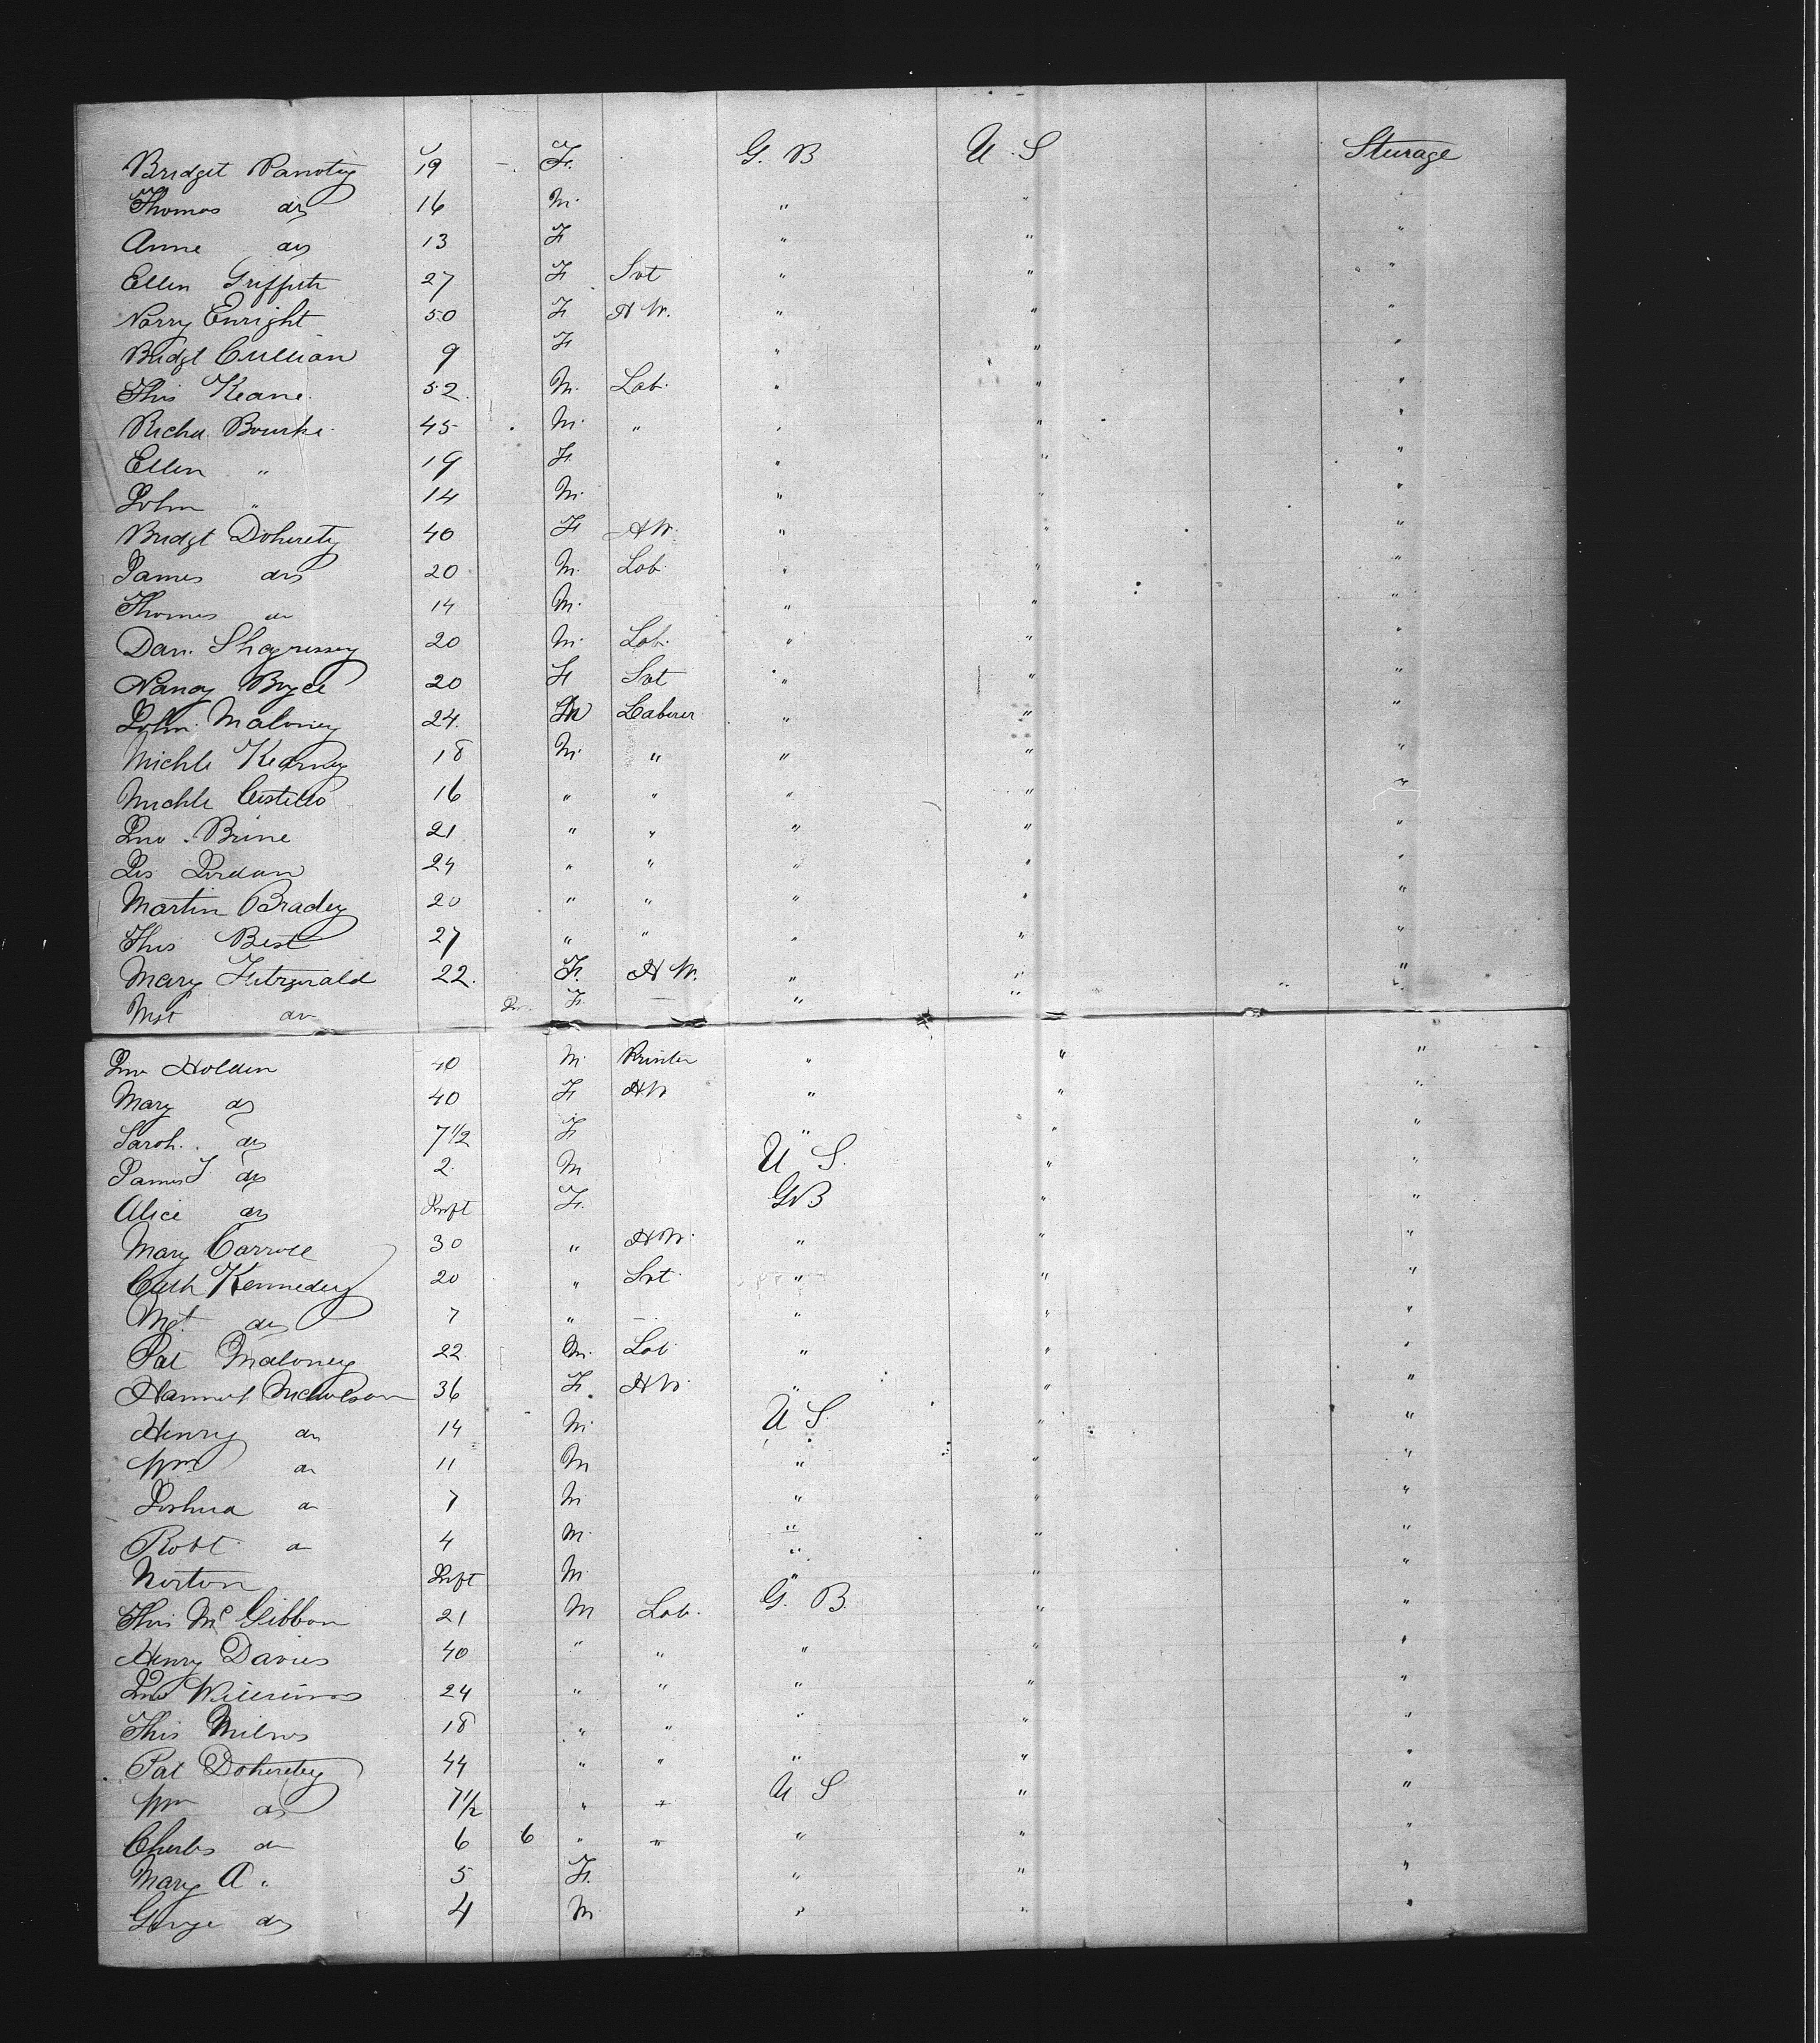 Bridget 19 F. G. B U. S Sturage
Thomas do 16 M. " " "
Anne do 13 F " " "
Ellen Griffith 27 F Svt " " "
Norry Enright 50 F H W. " " "
Bridgt Cullian 9 F " " "
Thos Keane. 52. M. Lab. " " "
Richd. Bourke 45 M. " " " "
Ellen " 19 F. " " "
John " 14 M. " " "
Bridgt Doherety 40 F H W. " " "
James do 20 M. Lab " " "
Thomas do 14 M. " " "
Dan. 20 M. Lab. " " "
Nancy Bryce 20 F Svt " " "
John Maloney 24. M Laberer " " "
Michle Kearney 18 M. " " " "
Michle Costello 16 " " " " "
Jno. Brine 21 " " " " "
Jas Jordan 24 " " " " "
Martin Brady 20 " " " " "
Thos Best 27 " " " " "
Mary Fitzgerald 22. F. H W. " " "
Mgt do Inf. F. — " " "
Jno Holden 40 M. Printer " " "
Mary do 40 F HW " " "
Sarah. do 7 1/2 F " " "
James T do 2. M U S. " "
Alice do Inft F. GB " "
Mary Carroll 30 " HW. " " "
Cath Kennedy 20 " Svt. " " "
Mgt. do 7 " — " " "
Pat Maloney 22 M. Lab " " "
Hannah Nicholson 36 F. HW. " " "
Henry do 14 M. U S. " "
Wm do 11 M " " "
Joshua do 7 M " " "
Robt do 4 M. " " "
Norton Inft M. " " "
Thos McGibbon 21 M Lab. G. B " "
Henry Davies 40 " " " " "
Jno Williams 24 " " " " "
Thos Milnes 18 " " " " "
Pat Doherety 44 " " " " "
Wm do 7 1/2 " " U S " "
Charles do 6 6 " " " " "
Mary A " 5 F. " " "
George do 4 M " " "